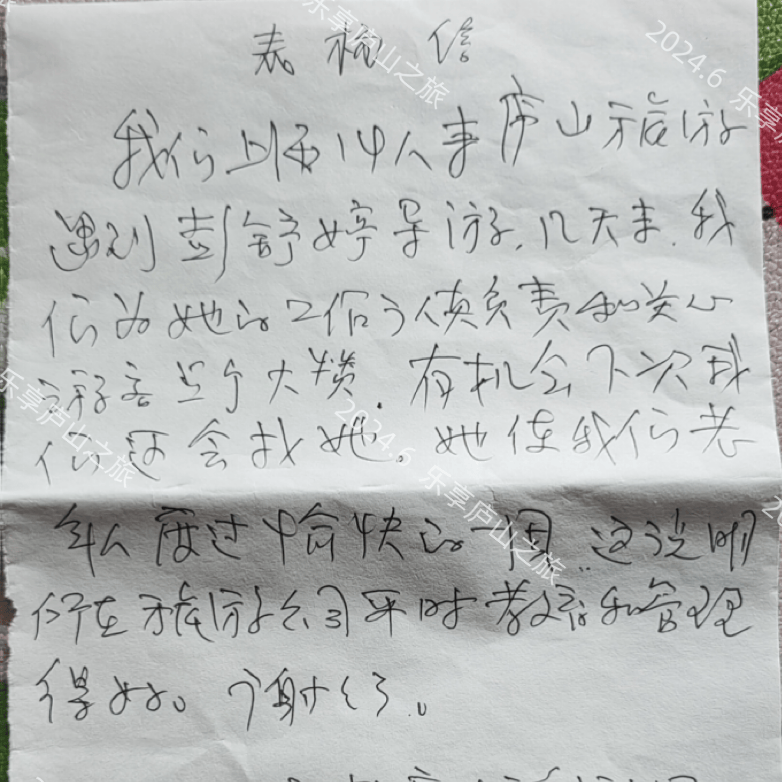 表扬信
我们上海14人来庐山旅游
遇到彭舒婷导游,几天来,我
们为她的工作认真负责和关心
游客点个大赞.有机会下次我
们还会找她。她使我们老
年人度过愉快的一周.这说明
所在旅游公司平时教育和管理
得好。谢谢了.
2024.6 乐享庐山之旅
2024.6 乐享庐山之旅